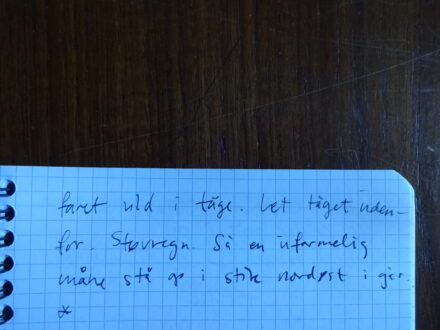 faret vild i tåge. Let tåget uden-
for. Støvregn. Så en uformelig
måne stå op i stik nordøst i går.
*